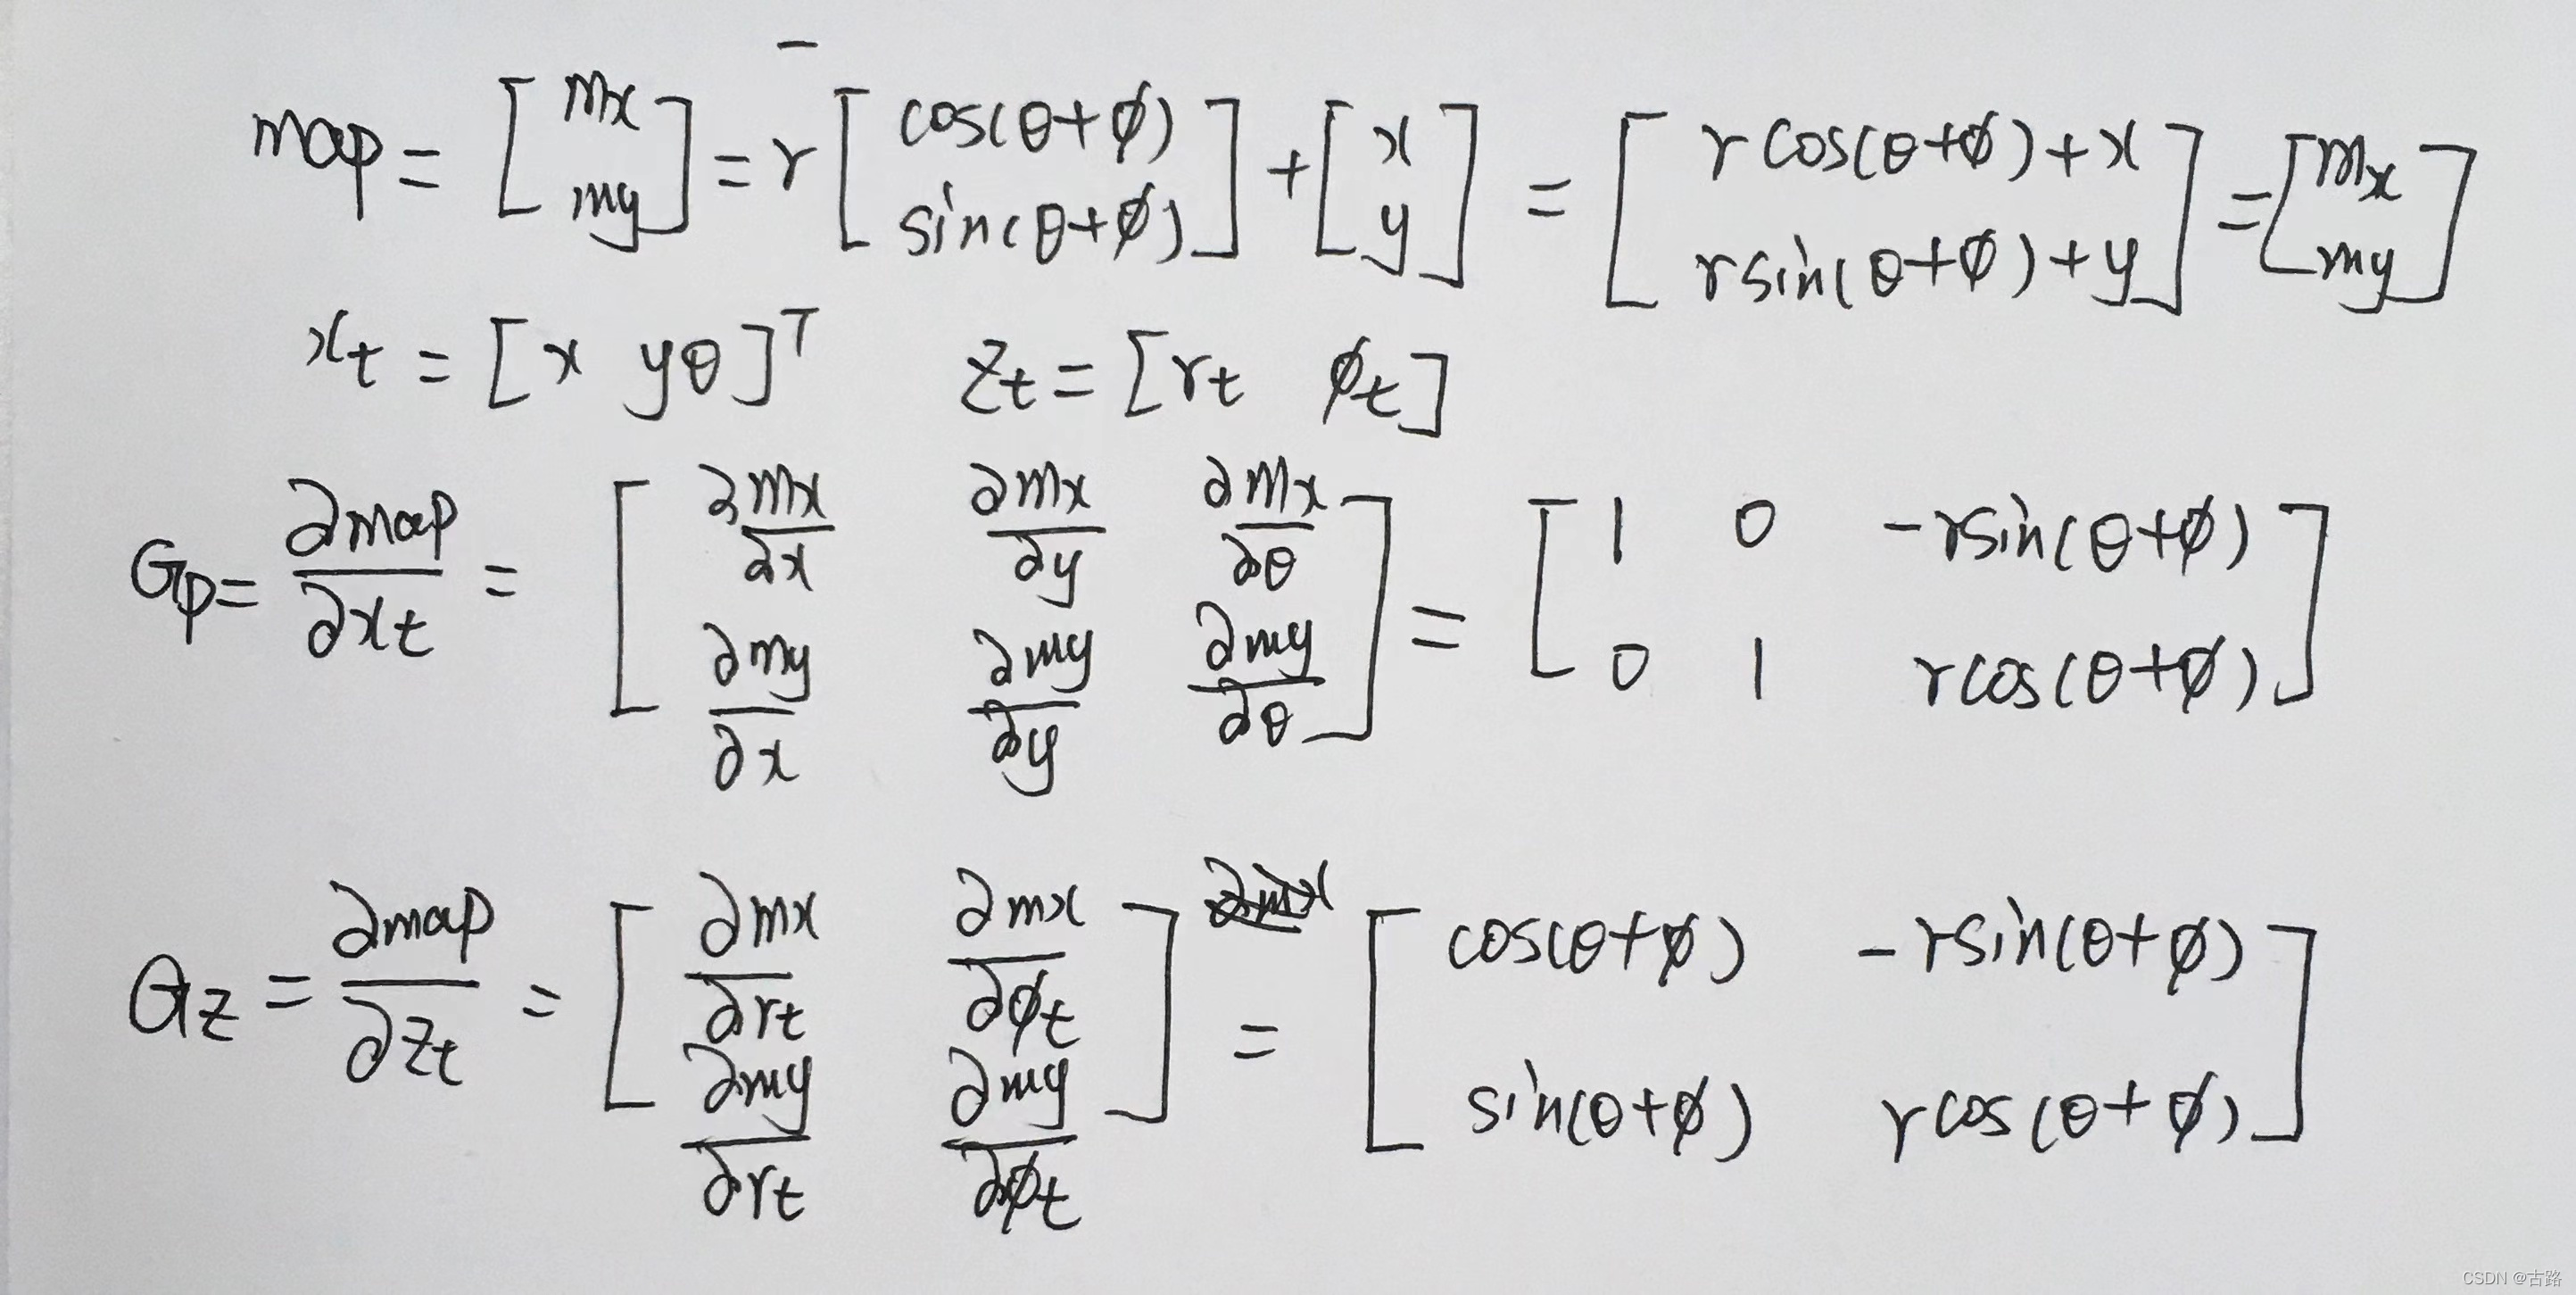 map = [ mx my ] = r [ cos(θ+φ) sin(θ+φ) ] + [ x y ] = [ rcos(θ+φ)+x rsin(θ+φ)+y ] = [ mx my ]
xt = [ x yθ ]ᵀ zt = [ rt φt ]
Gp = ∂map/∂xt = [ ∂mx/∂x ∂mx/∂y ∂mx/∂θ ∂my/∂x ∂my/∂y ∂my/∂θ ] = [ 1 0 -rsin(θ+φ) 0 1 rcos(θ+φ) ]
Gz = ∂map/∂zt = [ ∂mx/∂rt ∂mx/∂φt ∂my/∂rt ∂my/∂φt ] = [ cos(θ+φ) -rsin(θ+φ) sin(θ+φ) rcos(θ+φ) ]
CSDN @古路